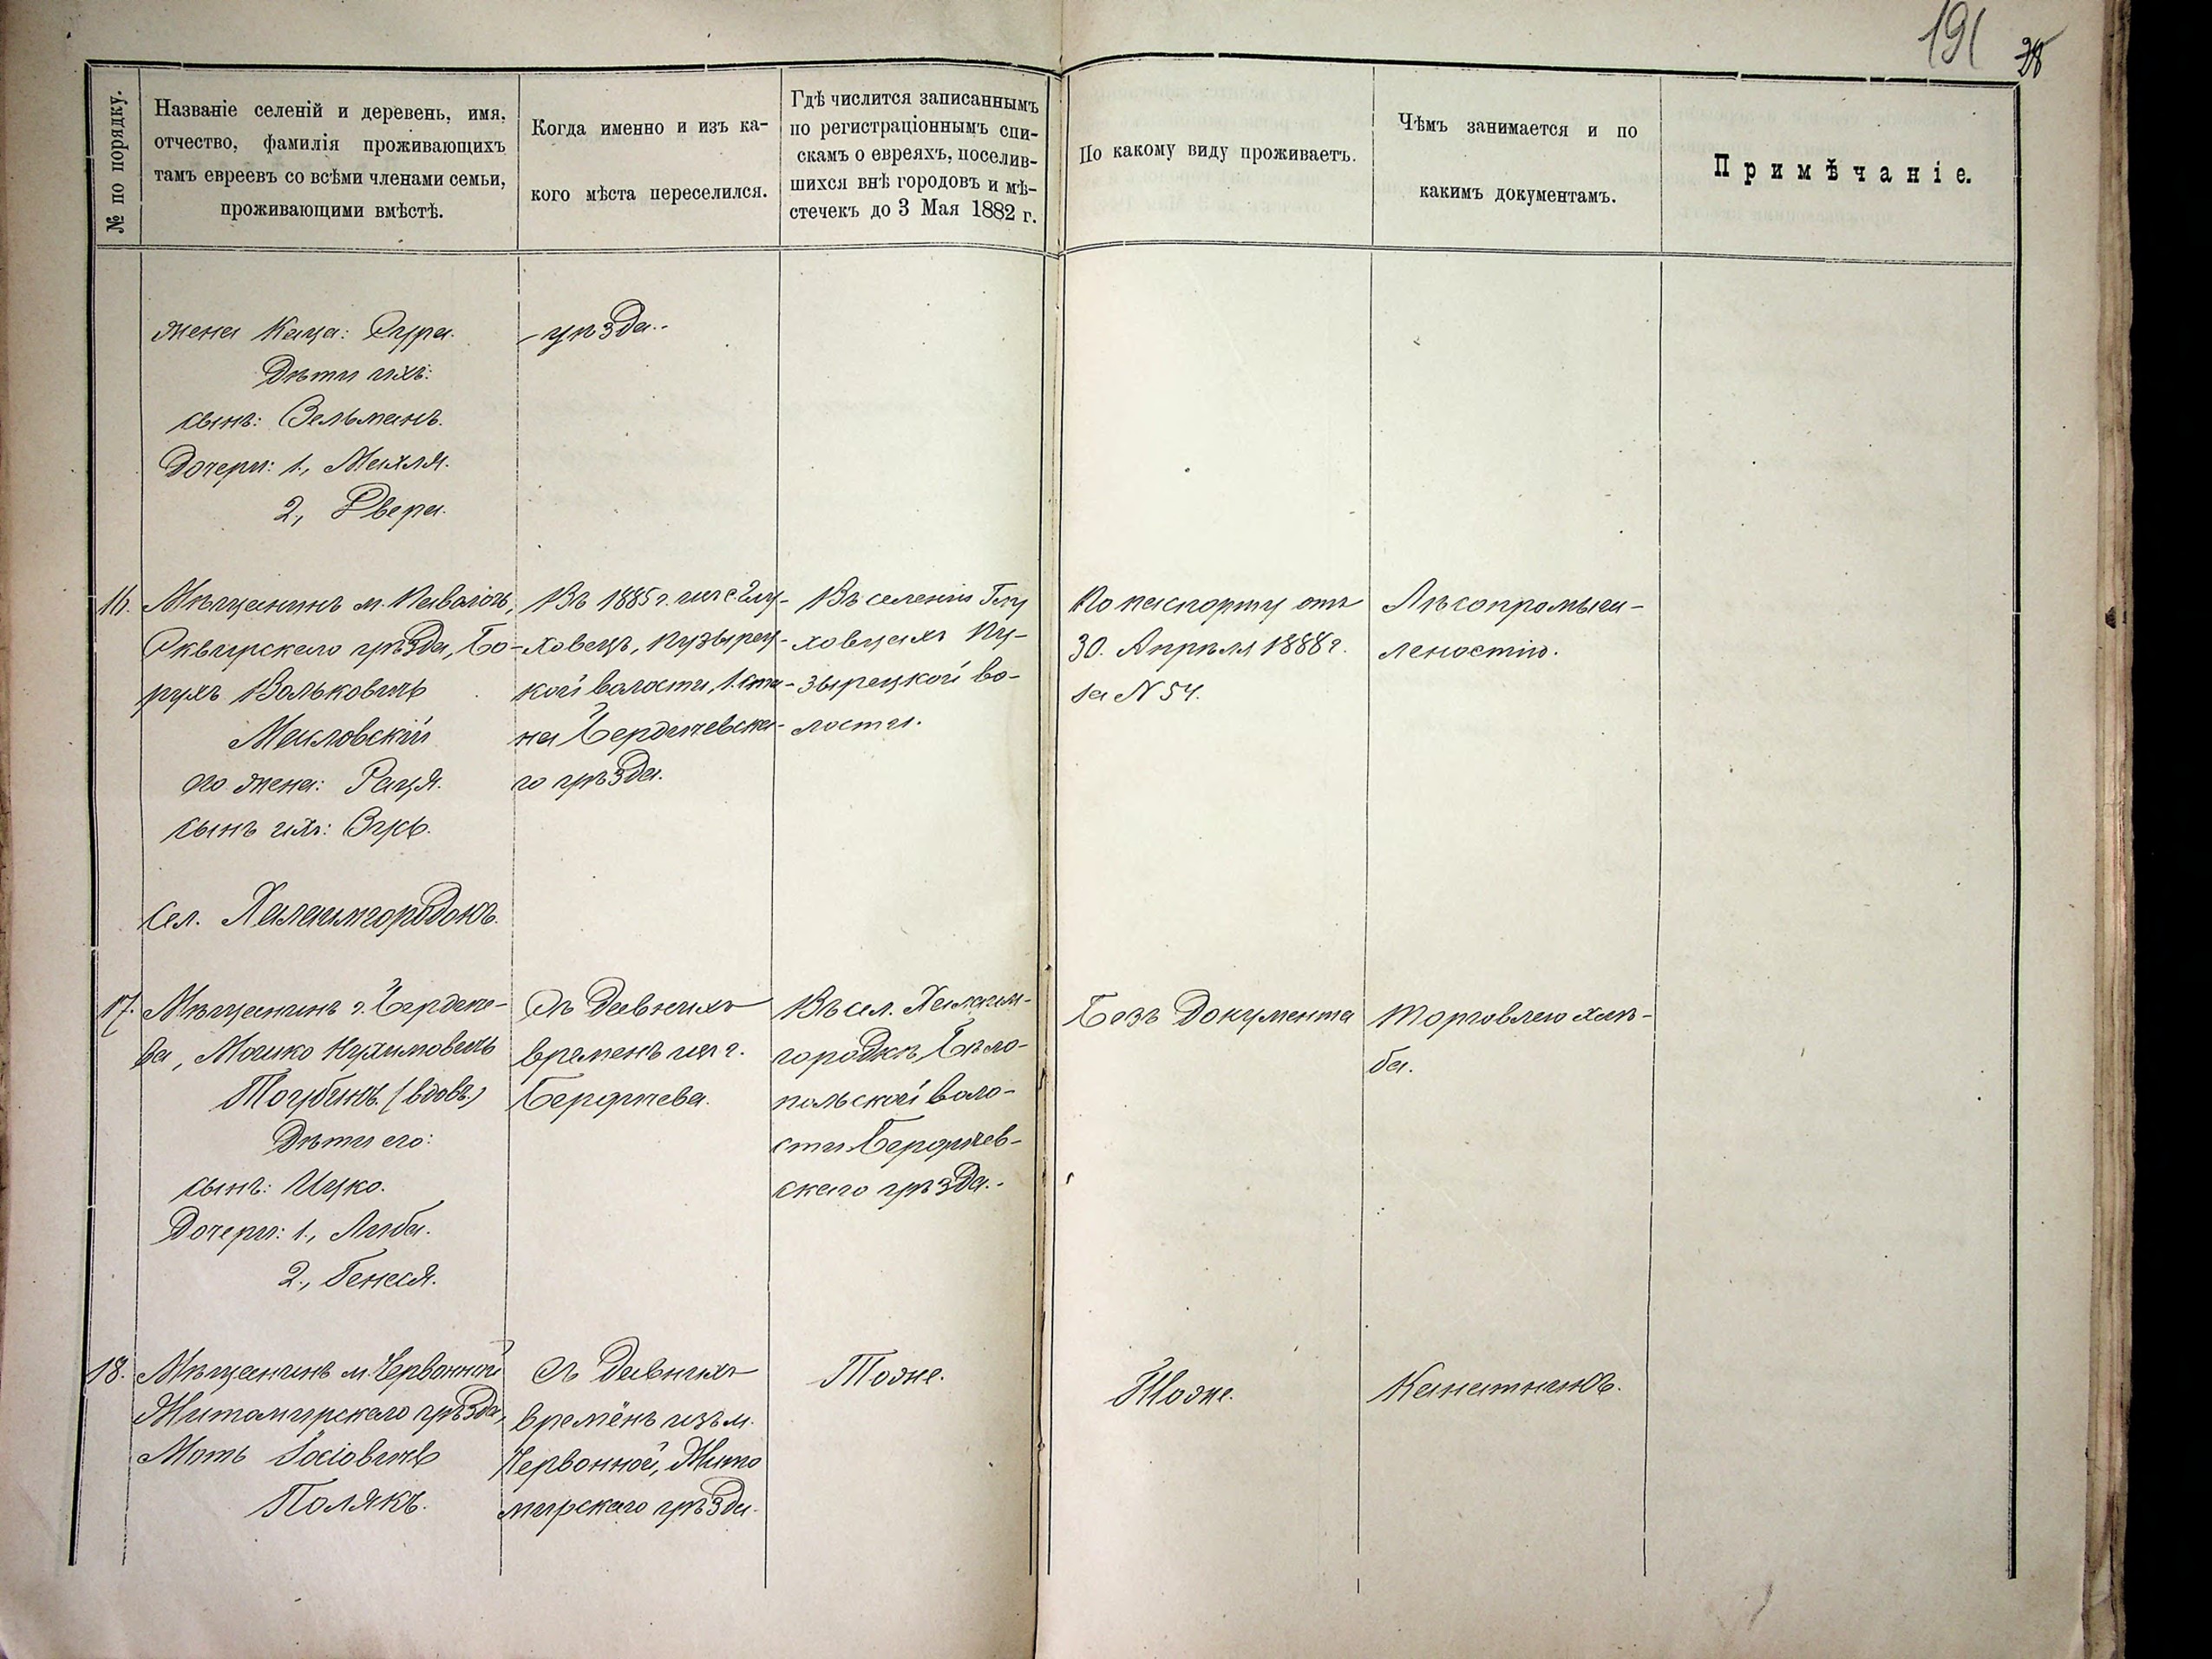 191
28
№ по порядку.
Названіе селеній и деревень, имя,
отчество, фамилія проживающихъ
тамъ евреевъ со всѣми членами семьи,
проживающими вмѣстѣ.
Когда именно и изъ ка-
кого мѣста переселился.
Гдѣ числится записаннымъ
по регистраціоннымъ спи-
скамъ о евреяхъ, поселив-
шихся внѣ городовъ и мѣ-
стечекъ до 3 Мая 1882 г.
По какому виду проживаетъ.
Чѣмъ занимается и по
какимъ документамъ.
Примѣчаніе.
жена Каца: Сура.
Дѣти ихъ:
сынъ: Зельманъ.
Дочери: 1., Махля.
2., Двера.
уѣзда.
16.
Мѣщанинъ м. Паволочь,
Сквирскаго уѣзда, Бо-
рухъ Вольковичъ
Масловскій
его жена: Рация.
сынъ ихъ: Зусь.
Въ 1885 г. изъ с. Глу-
ховецъ, Пузырец-
кой волости, 1. ста-
на Бердичевска-
го уѣзда.
Въ селеніи Глу
ховцахъ Пу-
зырецкой во-
лости.
По паспорту отъ
30. Апрѣля 1888 г.
за № 54.
Лѣсопромыш-
леностію.
Сел. Халаимгородокъ.
17.
Мѣщанинъ г. Бердиче-
ва, Мошко Нухимовичъ
Тоубинъ. (вдовъ.)
Дѣти его:
сынъ: Ицко.
Дочери: 1., Либа.
2., Генеся.
Съ давнихъ
временъ изъ г.
Бердичева.
Въ сел. Халаим-
городкѣ, Бѣло-
польской воло-
сти Бердичев-
скаго уѣзда.
Безъ документа
Торговлею хлѣ-
ба.
18.
Мѣщанинъ м. Червонной
Житомирскаго уѣзда,
Моть Іосіовичъ
Полякъ.
Съ давнихъ
времёнъ изъ м.
Червонной, Жито
мирскаго уѣзда.
Тоже.
Тоже.
Канатникъ.